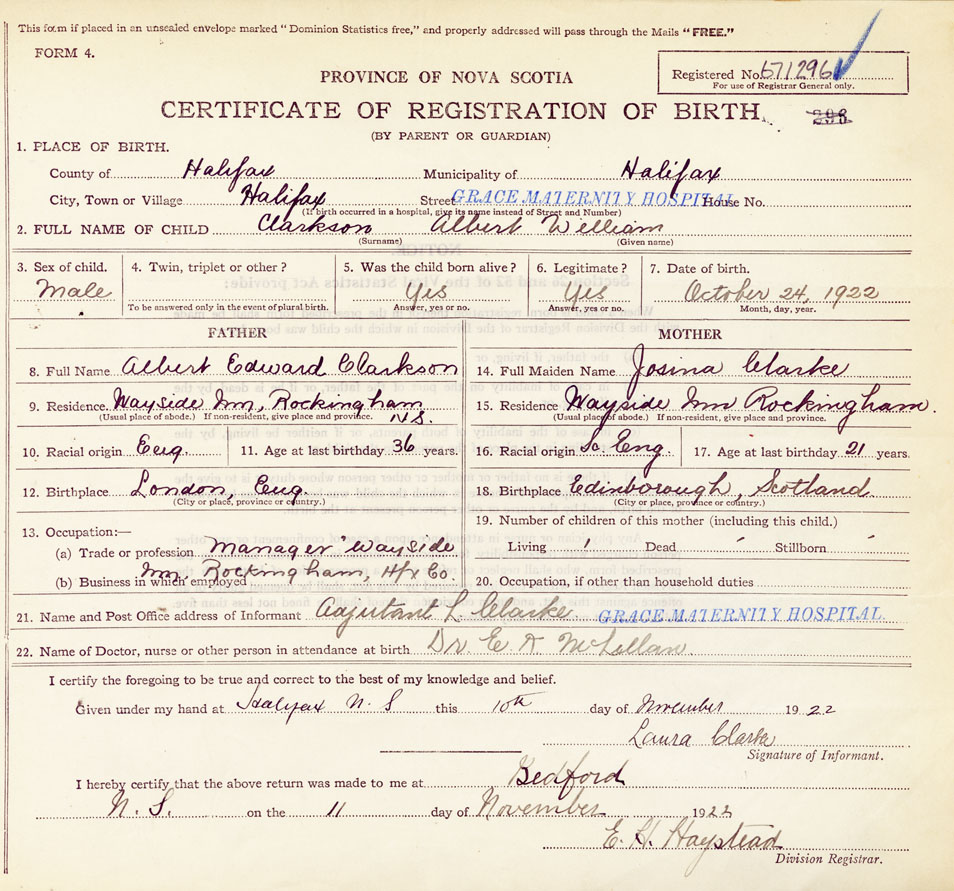 This form if placed in an unsealed envelope marked "Dominion Statistics free," and properly addressed will pass through the Mails "FREE."
FORM 4.
PROVINCE OF NOVA SCOTIA
Registered No. 671296
For use of Registrar General only.
CERTIFICATE OF REGISTRATION OF BIRTH.
296
(BY PARENT OR GUARDIAN)
1. PLACE OF BIRTH.
County of Halifax Municipality of Halifax
City, Town or Village Halifax Street GRACE MATERNITY HOSPITAL House No.
(If birth occurred in a hospital, give its name instead of Street and Number)
2. FULL NAME OF CHILD Clarkson Albert William
(Surname) (Given name)
3. Sex of child. 4. Twin, triplet or other? 5. Was the child born alive? 6. Legitimate? 7. Date of birth.
Male Yes Yes October 24, 1922
To be answered only in the event of plural birth. Answer, yes or no. Answer, yes or no. Month, day, year.
FATHER MOTHER
8. Full Name Albert Edward Clarkson 14. Full Maiden Name Josina Clarke
9. Residence. Wayside Inn, Rockingham N.S. 15. Residence Wayside Inn Rockingham.
(Usual place of abode.) If non-resident, give place and province. (Usual place of abode.) If non-resident, give place and province.
10. Racial origin Eng. 11. Age at last birthday 36 years. 16. Racial origin Sc. Eng. 17. Age at last birthday 21 years.
12. Birthplace London, Eng. 18. Birthplace Edinborough, Scotland
(City or place, province or country.) (City or place, province or country.)
13. Occupation:— 19. Number of children of this mother (including this child.)
(a) Trade or profession Manager Wayside Living 1 Dead Stillborn
(b) Business in which employed Inn, Rockingham, Hfx Co. 20. Occupation, if other than household duties
21. Name and Post Office address of Informant Adjutant L. Clarke GRACE MATERNITY HOSPITAL.
22. Name of Doctor, nurse or other person in attendance at birth Dr. E. A. McLellan.
I certify the foregoing to be true and correct to the best of my knowledge and belief.
Given under my hand at Halifax N. S this 10th day of November 1922
Laura Clarke
Signature of Informant.
I hereby certify that the above return was made to me at Bedford
N. S. on the 11 day of November 1922
E. H. Haystead
Division Registrar.